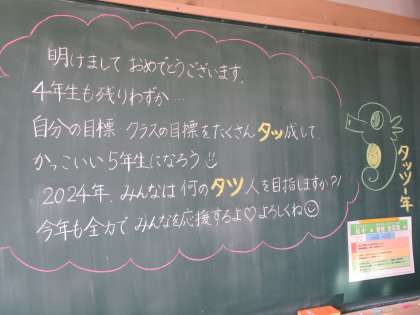 明けまして おめでとうございます.
4年生も残りわずか…
自分の目標 クラスの目標をたくさんタッ成して
かっこいい5年生になろう
2024年. みんなは 何のタツ人を目指しますか?!
今年も全力で みんなを応援するよ♡ よろしくね
タツ年